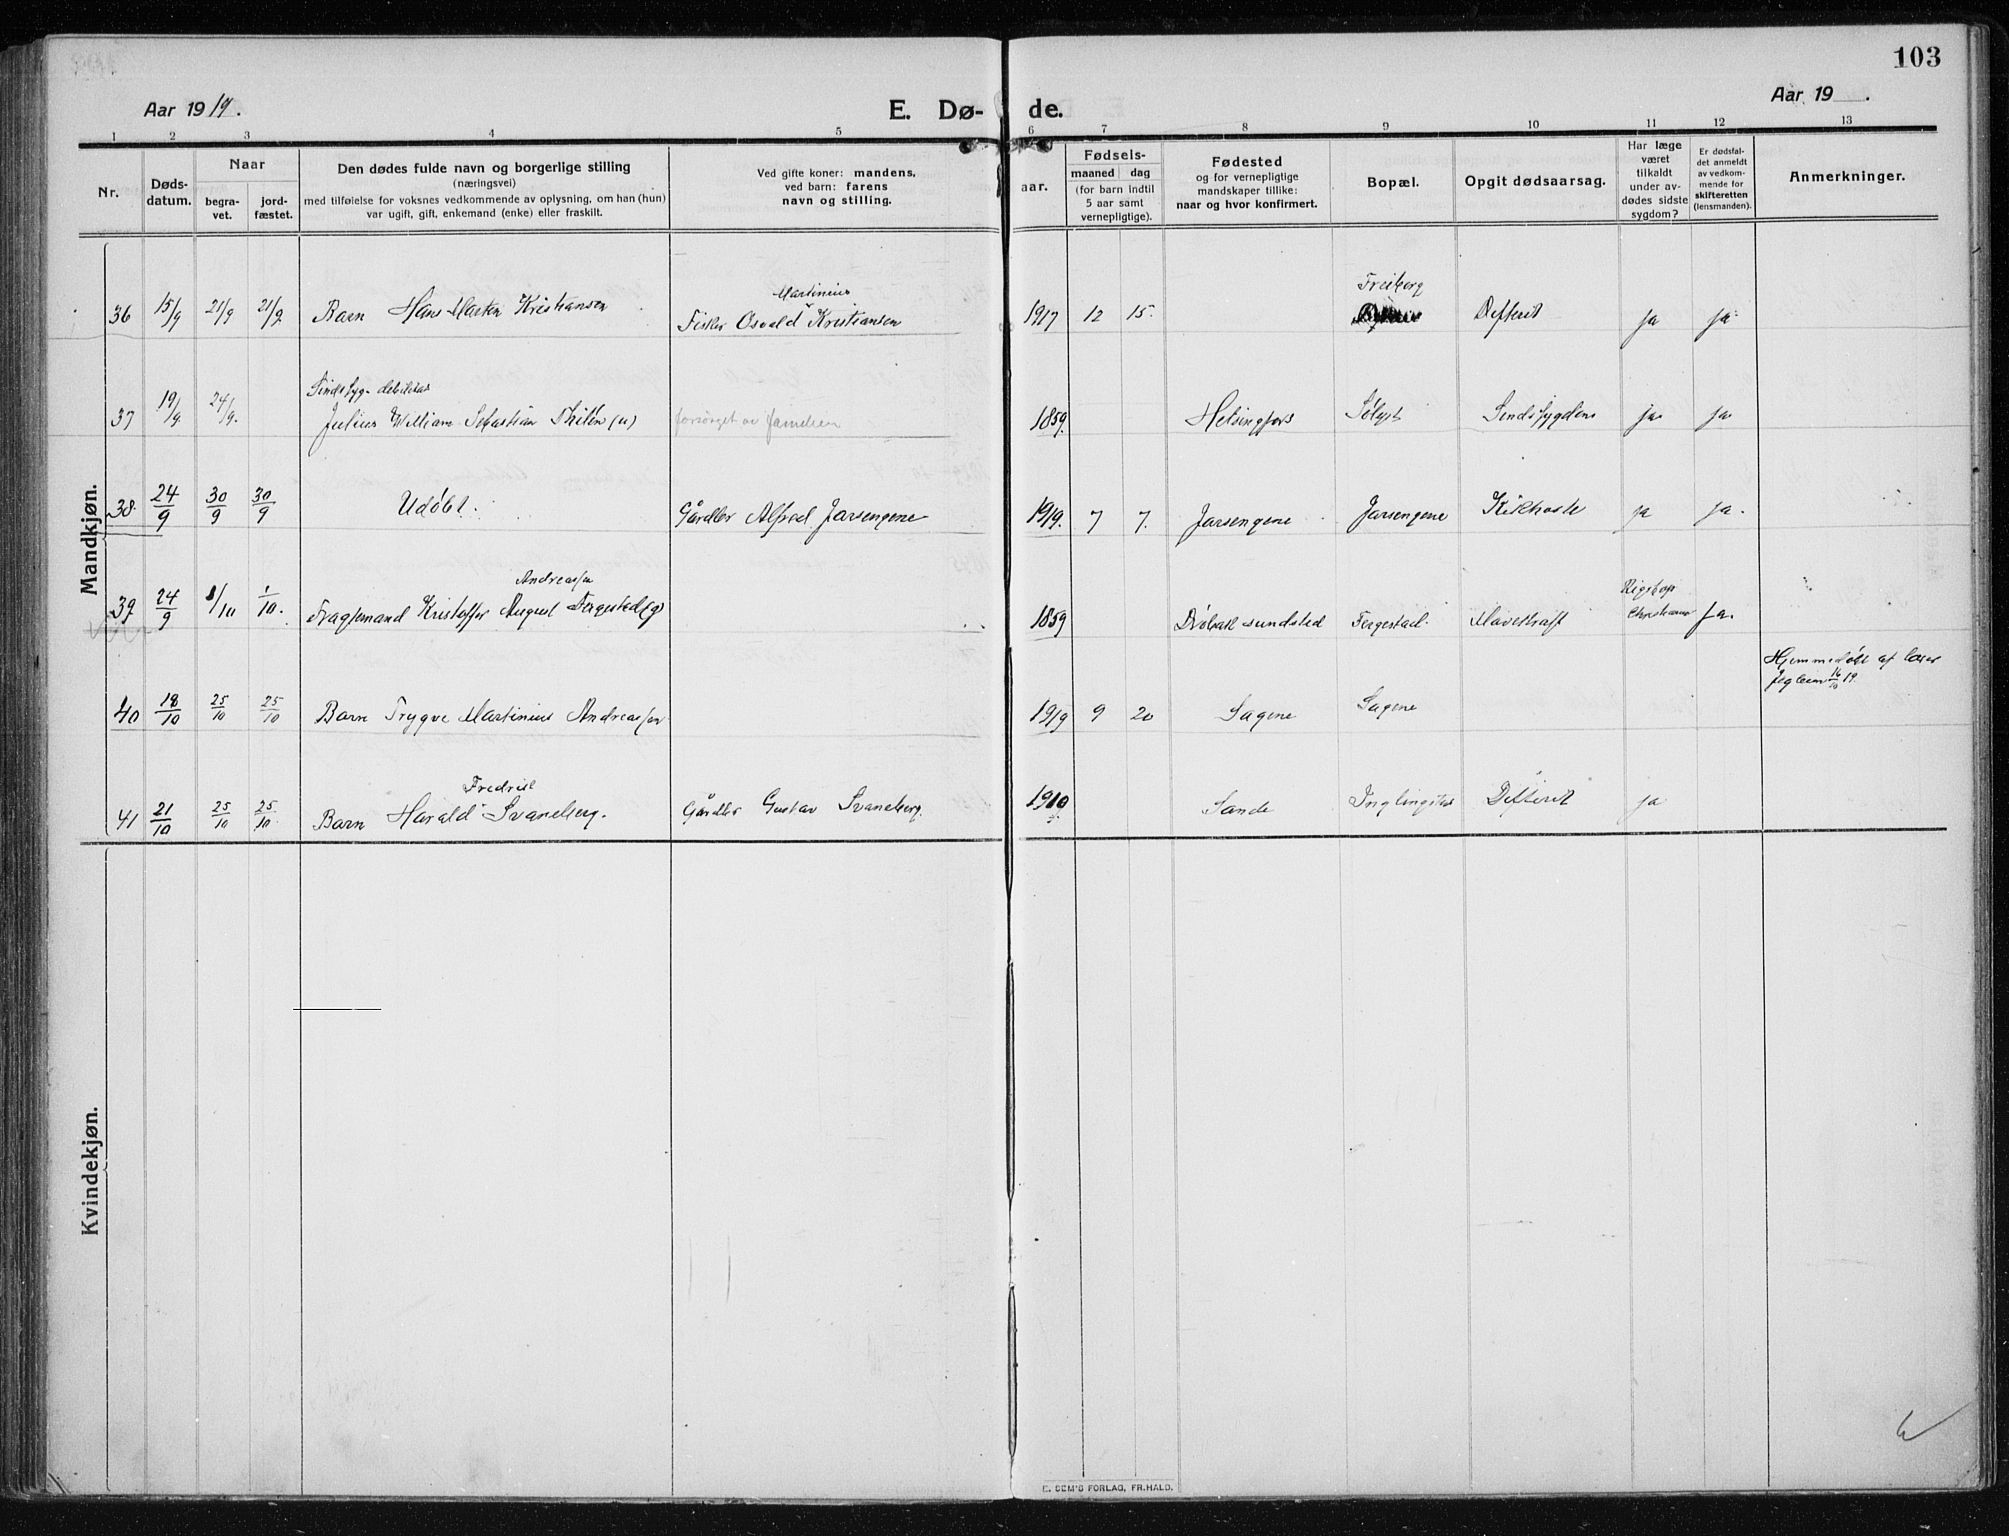 103
Aar 1919.
E. Dø-
de.
Aar 19 .
1 2 3 4 5 6 7 8 9 10 11 12 13
Nr.
Døds-
datum.
Naar
begra-
vet.
jord-
fæstet.
Den dødes fulde navn og borgerlige stilling
(næringsvei)
med tilføielse for voksnes vedkommende av oplysning, om han (hun)
var ugift, gift, enkemand (enke) eller fraskilt.
Ved gifte koner: mandens,
ved barn: farens
navn og stilling.
aar.
Fødsels-
maaned dag
(for barn indtil
5 aar samt
vernepligtige).
Fødested
og for vernepligtige
mandskaper tillike:
naar og hvor konfirmert.
Bopæl.
Opgit dødsaarsag.
Har læge
været
tilkaldt
under av-
dødes sidste
sygdom?
Er dødsfal-
det anmeldt
av vedkom-
mende for
skifteretten
(lensmanden).
Anmerkninger.
Mandkjøn.
Martinius Freiberg
36 15/9 21/9 21/9 Barn Hans Marten Kristiansen Fisker Osvald Kristiansen 1917 12 15. Difterit ja ja
Sindssyg
37 19/9. 24/9. Julius William Sebastian Thilén (u) forsørget av familien 1859. Helsingfors Sølyst Sindssygdom ja ja
38. 24/9 30/9 30/9 Udøbt. Gårdbr Alfred Jarsengene 1919. 7 7. Jarsengene Jarsengene Kikhoste ja ja.
Andreassen Rigshosp
39 24/9 1/10 1/10. Fragtemand Kristoffer August Fergestad (g) 1859 Drøbak sundsted Fergestad. Mavekræft Christiania Ja.
Hjemmedøbt af lærer
16/10 19.
40 18/10 25/10 25/10 Barn Trygve Martinius Andreassen 1919 9 20 Sagene Sagene
Fredrik
41 21/10 25/10 25/10 Barn Harald Svaneberg. Gårdbr Gustav Svaneberg. 1910 Sande Difterit ja
Kvindekjøn.
E. SEM'S FORLAG, FR.HALD.